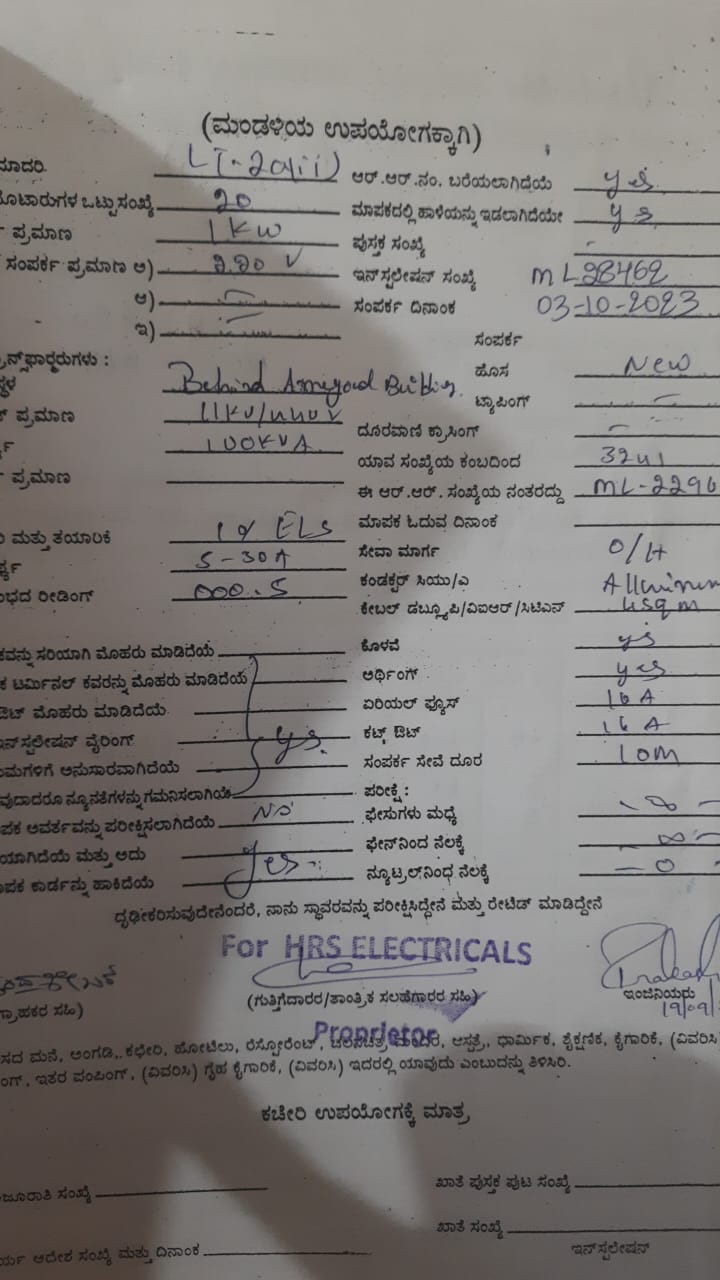 (ಮಂಡಳಿಯ ಉಪಯೋಗಕ್ಕಾಗಿ)
ಮಾದರಿ LT-2a(ii) ಆರ್.ಆರ್.ನಂ. ಬರೆಯಲಾಗಿದೆಯೆ yes
ಮೋಟಾರುಗಳ ಒಟ್ಟು ಸಂಖ್ಯೆ 20 ಮಾಪಕದಲ್ಲಿ ಹಾಳೆಯನ್ನು ಇಡಲಾಗಿದೆಯೇ yes
ಪ್ರಮಾಣ 1 KW ಪುಸ್ತಕ ಸಂಖ್ಯೆ -
ಸಂಪರ್ಕ ಪ್ರಮಾಣ ಅ) V ಇನ್‌ಸ್ಪಲೇಷನ್ ಸಂಖ್ಯೆ ML28462
ಆ) - ಸಂಪರ್ಕ ದಿನಾಂಕ 03-10-2023
ಇ) - ಸಂಪರ್ಕ
ಸ್ಥಳ Behind Building ಹೊಸ New
ಪ್ರಮಾಣ 11KV/440V ಟ್ಯಾಪಿಂಗ್ -
100KVA ದೂರವಾಣಿ ಕ್ರಾಸಿಂಗ್ -
ಪ್ರಮಾಣ ಯಾವ ಸಂಖ್ಯೆಯ ಕಂಬದಿಂದ
ಈ ಆರ್.ಆರ್. ಸಂಖ್ಯೆಯ ನಂತರದ್ದು ML-2296
ಮತ್ತು ತಯಾರಿಕೆ ELS ಮಾಪಕ ಓದುವ ದಿನಾಂಕ
5-30A ಸೇವಾ ಮಾರ್ಗ O/H
ರೀಡಿಂಗ್ 000.5 ಕಂಡಕ್ಟರ್ ಸಿಯು/ಎ
ಕೇಬಲ್ ಡಬ್ಲ್ಯೂಪಿ/ವಿಐಆರ್/ಸಿಟಿಎನ್ 4sqm
ಸರಿಯಾಗಿ ಮೊಹರು ಮಾಡಿದೆಯೆ ಕೊಳವೆ yes
ಟರ್ಮಿನಲ್ ಕವರನ್ನು ಮೊಹರು ಮಾಡಿದೆಯೆ ಅರ್ಥಿಂಗ್ yes
ಮೊಹರು ಮಾಡಿದೆಯೆ ಏರಿಯಲ್ ಫ್ಯೂಸ್ 16 A
ಇನ್‌ಸ್ಪಲೇಷನ್ ವೈರಿಂಗ್ yes ಕಟ್ಟ್ ಔಟ್ 16 A
ಅನುಸಾರವಾಗಿದೆಯೆ ಸಂಪರ್ಕ ಸೇವೆ ದೂರ 10M
ನ್ಯೂನತೆಗಳನ್ನು ಗಮನಿಸಲಾಗಿಯೆ ಪರೀಕ್ಷೆ :
ಪರೀಕ್ಷಿಸಲಾಗಿದೆಯೆ No ಫೇಸುಗಳು ಮಧ್ಯೆ - ∞ -
ಮತ್ತು ಅದು ಫೇಸ್‌ನಿಂದ ನೆಲಕ್ಕೆ ∞ -
ಕಾರ್ಡನ್ನು ಹಾಕಿದೆಯೆ Yes ನ್ಯೂಟ್ರಲ್‌ನಿಂಧ ನೆಲಕ್ಕೆ - 0 -
ದೃಢೀಕರಿಸುವುದೇನೆಂದರೆ, ನಾನು ಸ್ಥಾವರವನ್ನು ಪರೀಕ್ಷಿಸಿದ್ದೇನೆ ಮತ್ತು ರೇಟಿಡ್ ಮಾಡಿದ್ದೇನೆ
For HRS ELECTRICALS
ಗ್ರಾಹಕರ ಸಹಿ) (ಗುತ್ತಿಗೆದಾರರ/ತಾಂತ್ರಿಕ ಸಲಹೆಗಾರರ ಸಹಿ) ಇಂಜಿನಿಯರು
19/09/
Proprietor
ಮನೆ, ಅಂಗಡಿ, ಕಛೇರಿ, ಹೋಟೆಲು, ರೆಸ್ಟೋರೆಂಟ್, ಆಸ್ಪತ್ರೆ, ಧಾರ್ಮಿಕ, ಶೈಕ್ಷಣಿಕ, ಕೈಗಾರಿಕೆ, (ವಿವರಿಸಿ
ಇತರ ಪಂಪಿಂಗ್, (ವಿವರಿಸಿ) ಗೃಹ ಕೈಗಾರಿಕೆ, (ವಿವರಿಸಿ) ಇದರಲ್ಲಿ ಯಾವುದು ಎಂಬುದನ್ನು ತಿಳಿಸಿರಿ.
ಕಚೇರಿ ಉಪಯೋಗಕ್ಕೆ ಮಾತ್ರ
ಸಂಖ್ಯೆ ಖಾತೆ ಪುಸ್ತಕ ಪುಟ ಸಂಖ್ಯೆ
ಖಾತೆ ಸಂಖ್ಯೆ
ಆದೇಶ ಸಂಖ್ಯೆ ಮತ್ತು ದಿನಾಂಕ ಇನ್‌ಸ್ಪಲೇಷನ್